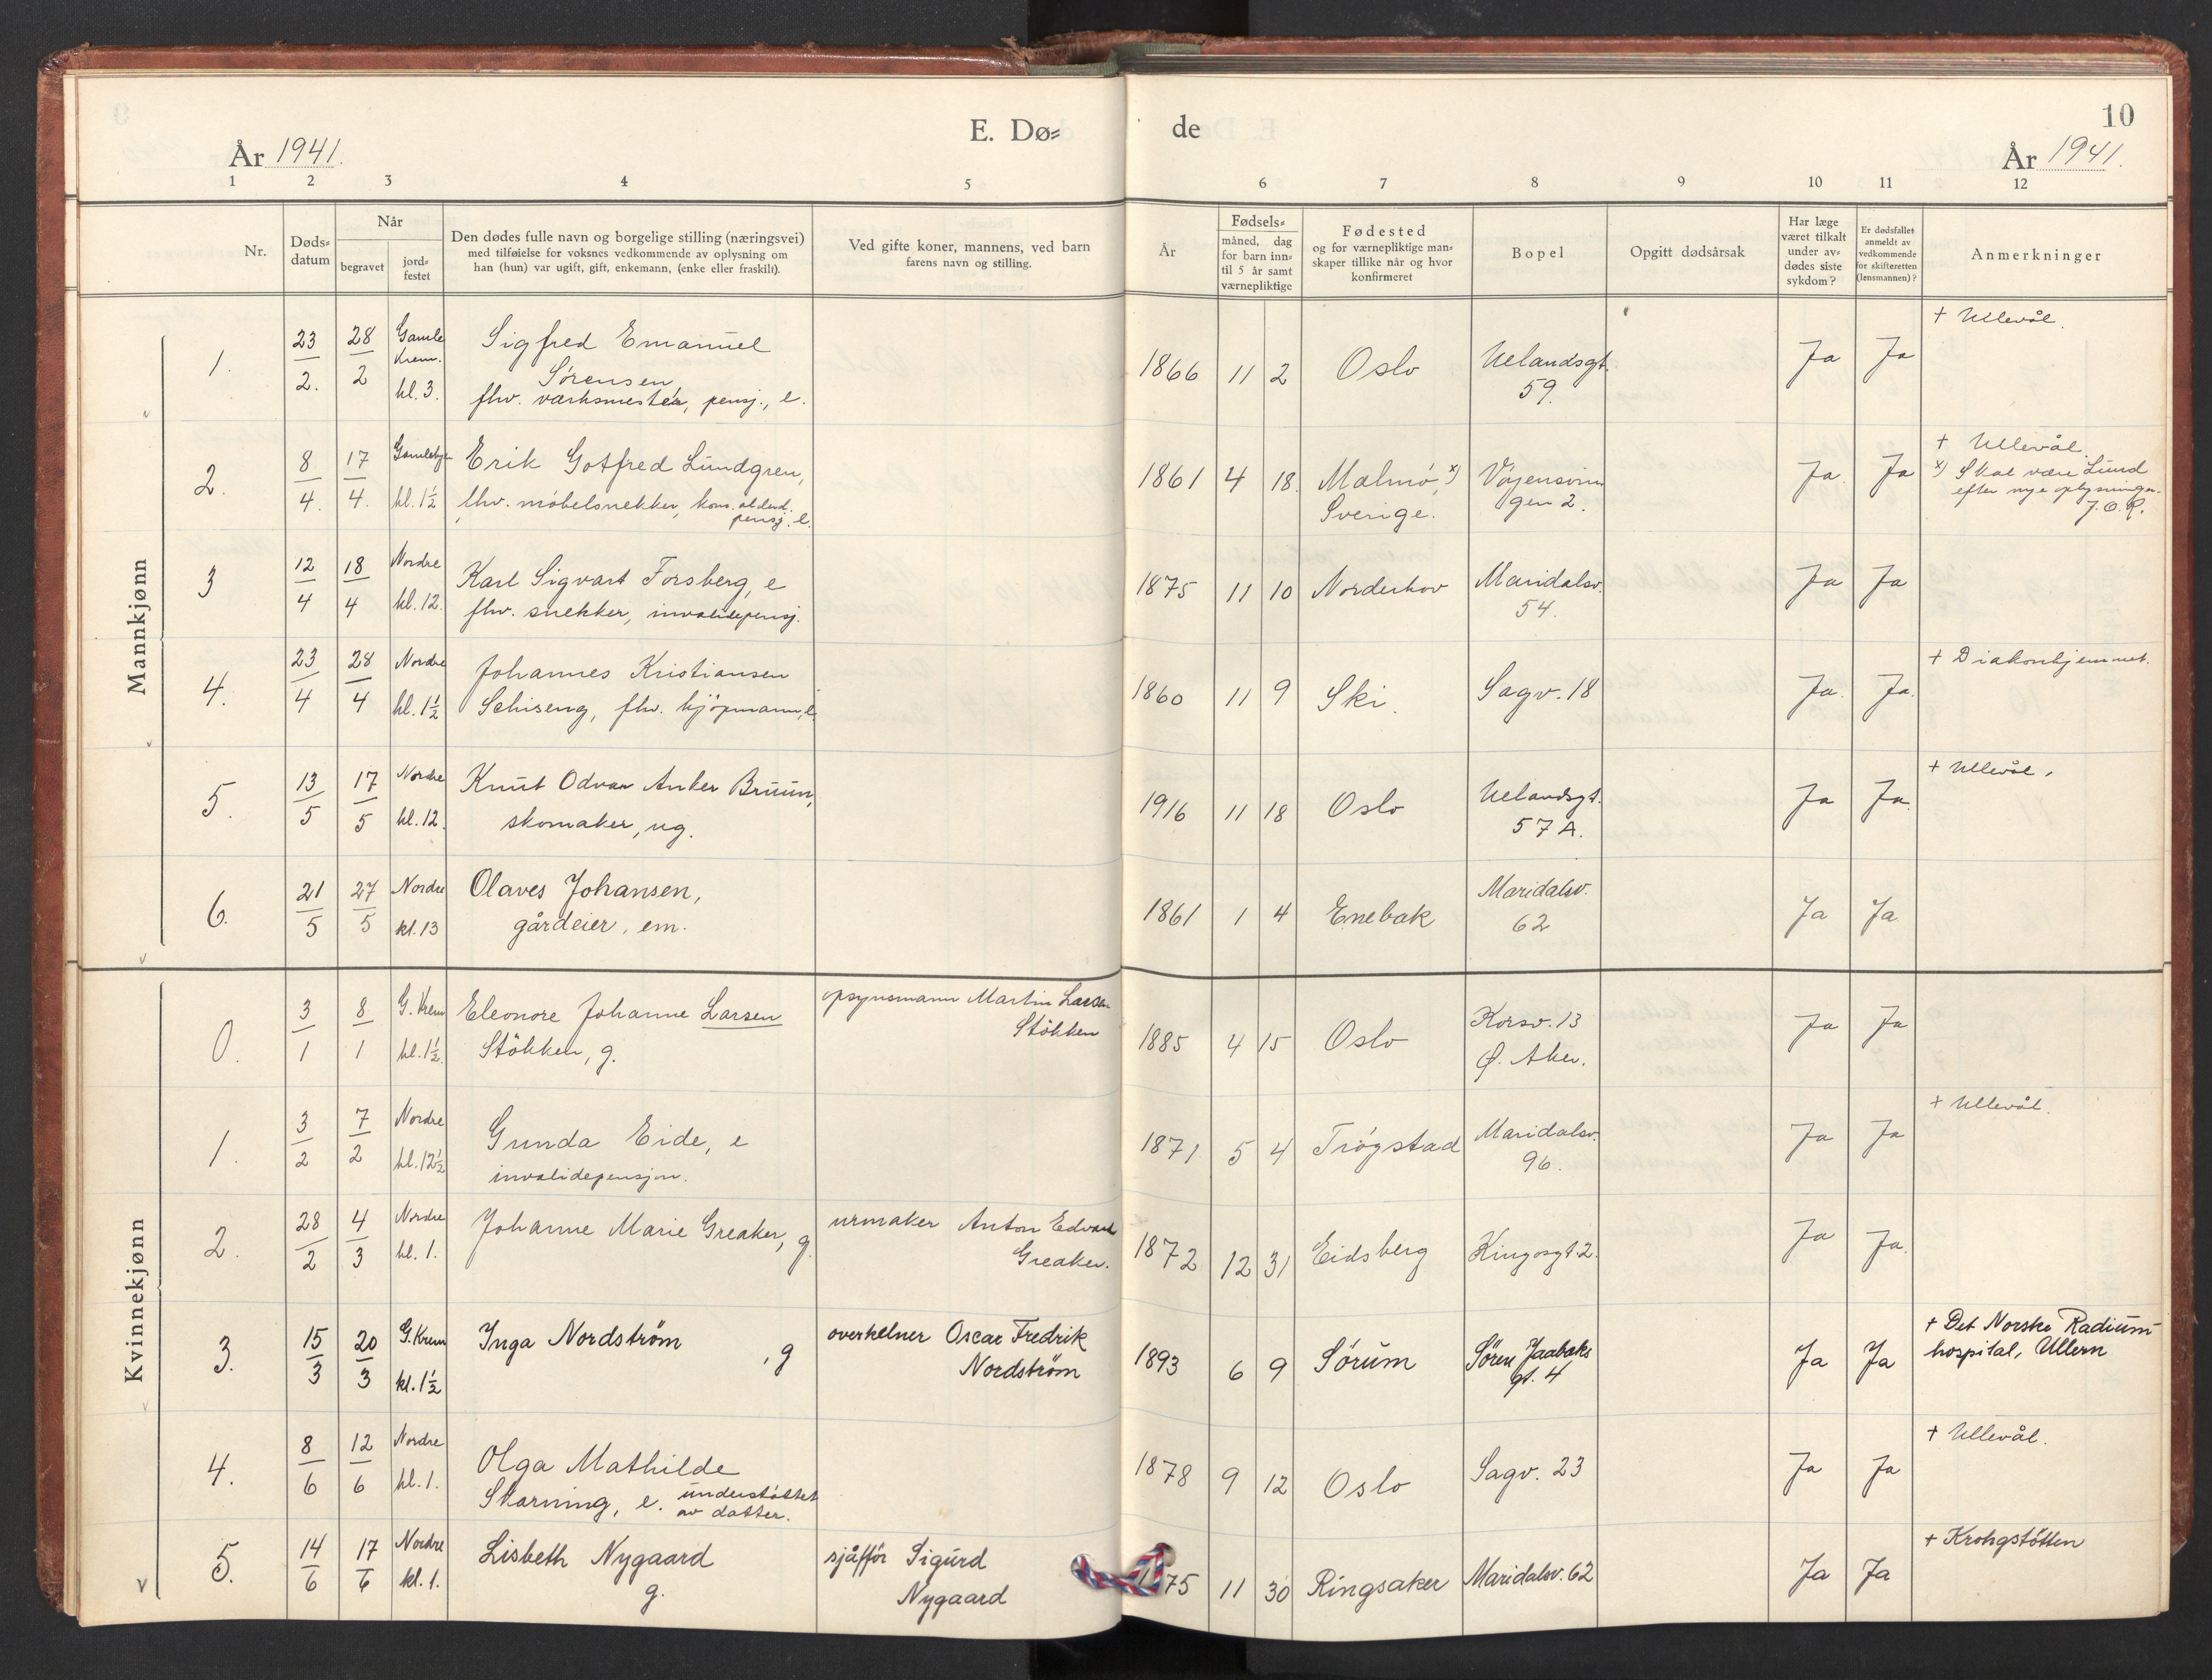 E. Dø= de
10
År 1941.
År 1941.
1 2 3 4 5 6 7 8 9 10 11 12
Nr.
Døds=
datum
Når
begravet
jord=
festet
Den dødes fulle navn og borgelige stilling (næringsvei)
med tilføielse for voksnes vedkommende av oplysning om
han (hun) var ugift, gift, enkemann, (enke eller fraskilt).
Ved gifte koner, mannens, ved barn
farens navn og stilling.
År
Fødsels=
måned, dag
for barn inn=
til 5 år samt
værnepliktige
Fødested
og for værnepliktige man=
skaper tillike når og hvor
konfirmeret
Bopel
Opgitt dødsårsak
Har læge
været tilkalt
under av=
dødes siste
sykdom?
Er dødsfallet
anmeldt av
vedkommende
for skifteretten
(lensmannen)?
Anmerkninger
Mannkjønn
1. 23/2. 28/2 Gamle Krem. kl. 3.
Sigfred Emanuel
Sørensen,
fhv. værksmester, pensj., e.
1866 11 2 Oslo
Uelandsgt.
59.
Ja Ja
+ Ullevål.
2. 8/4. 17/4. Gamlebyen kl. 1½
Erik Gotfred Lundgren,
fhv. møbelsnekker, kom. alderd.
pensj. e.
1861 4 18. Malmö, x)
Sverige.
Vøyensvin
gen 2.
Ja. Ja
+ Ullevål.
x) Skal være Lund
efter nye oplysninger.
J.O.R.
3 12/4 18/4 Nordre kl. 12.
Karl Sigvart Forsberg, e
fhv. snekker, invalidepensj.
1875 11 10 Norderhov
Maridalsv.
54.
Ja Ja
4. 23/4 28/4 Nordre kl. 1½
Johannes Kristiansen
Schiseng, fhv. kjøpmann, e
1860 11 9 Ski.
Sagv. 18
Ja. Ja.
+ Diakonhjemmet.
5. 13/5 17/5 Nordre kl. 12.
Knut Odvar Anker Bruun,
skomaker, ug.
1916 11 18 Oslo
Uelandsgt.
57 A.
Ja Ja.
+ Ullevål.
6. 21/5 27/5 Nordre kl. 13
Olaves Johansen,
gårdeier, em.
1861 1 4 Enebak
Maridalsv.
62
Ja Ja
Kvinnekjønn
0. 3/1 8/1 G. Krem kl. 1½.
Eleonore Johanne Larsen
Stökken, g.
opsynsmann Martin Larsen
Stökken
1885 4 15 Oslo
Korsv. 13
Ø. Aker.
Ja Ja
1. 3/2 7/2 Nordre kl. 12½
Gunda Eide, e
invalidepensjon.
1871 5 4 Trøgstad
Maridalsv.
96.
Ja Ja
+ Ullevål.
2. 28/2 4/3 Nordre kl. 1.
Johanne Marie Greaker, g.
urmaker Anton Edvard
Greaker.
1872 12 31 Eidsberg
Kingosgt 2.
Ja Ja.
3. 15/3 20/3 G. Krem kl. 1½
Inga Nordström, g
overkelner Oscar Fredrik
Nordström
1893 6 9 Sørum
Søren Jaabæks
gt. 4
Ja Ja
+ Det Norske Radium-
hospital, Ullern
4. 8/6 12/6 Nordre kl. 1.
Olga Mathilde
Skarning, e. understöttet
av datter.
1878 9 12 Oslo
Sagv. 23
Ja Ja
+ Ullevål.
5. 14/6 17/6 Nordre kl. 1.
Lisbeth Nygaard
g.
sjåffør Sigurd
Nygaard
1875 11 30 Ringsaker
Maridalsv. 62
Ja Ja
+ Krohgstötten